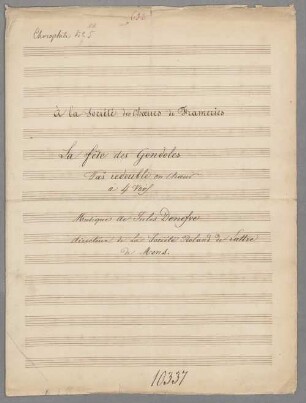 à la Société des Chœurs de Frameries
La fête des Gondoles
Pas redoublé ou chœur
a 4 voix
Musique de Jules Denefve
directeur de la Société Roland de Lattre
de Mons.
10337